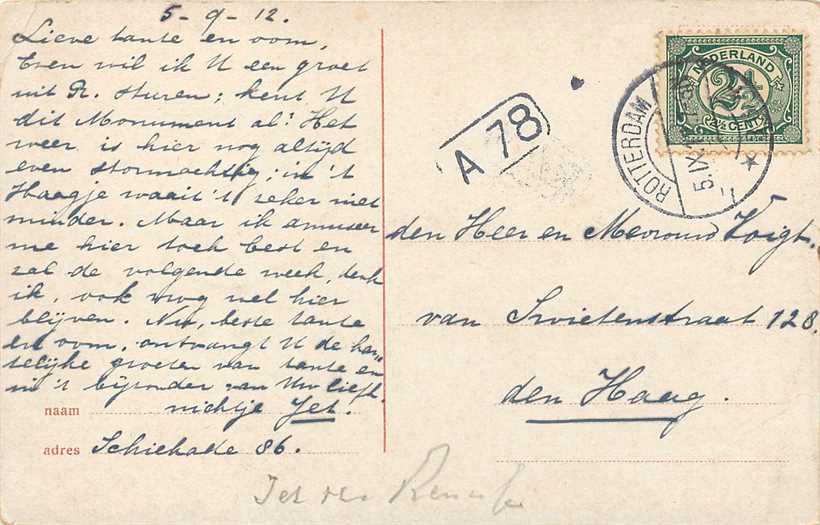 5-9-12.
Lieve tante en oom,
Even wil ik U een groet
uit R. sturen; kent U
dit Monument al? Het
weer is hier nog altijd
even stormachtig; in 't
Haagje waait 't zeker niet
minder. Maar ik amuseer
me hier toch best en
zal de volgende week, denk
ik, ook nog wel hier
blijven. Nu, beste tante
en oom, ontvangt U de har-
telijke groeten van tante en
in 't bijzonder van Uw liefh.
naam nichtje Jet.
adres Schiekade 86.
A 78
NEDERLAND
2½
2½ CENT
ROTTERDAM
5.IX.
den Heer en Mevrouw Voigt.
van Swietenstraat 128.
den Haag.
Jet